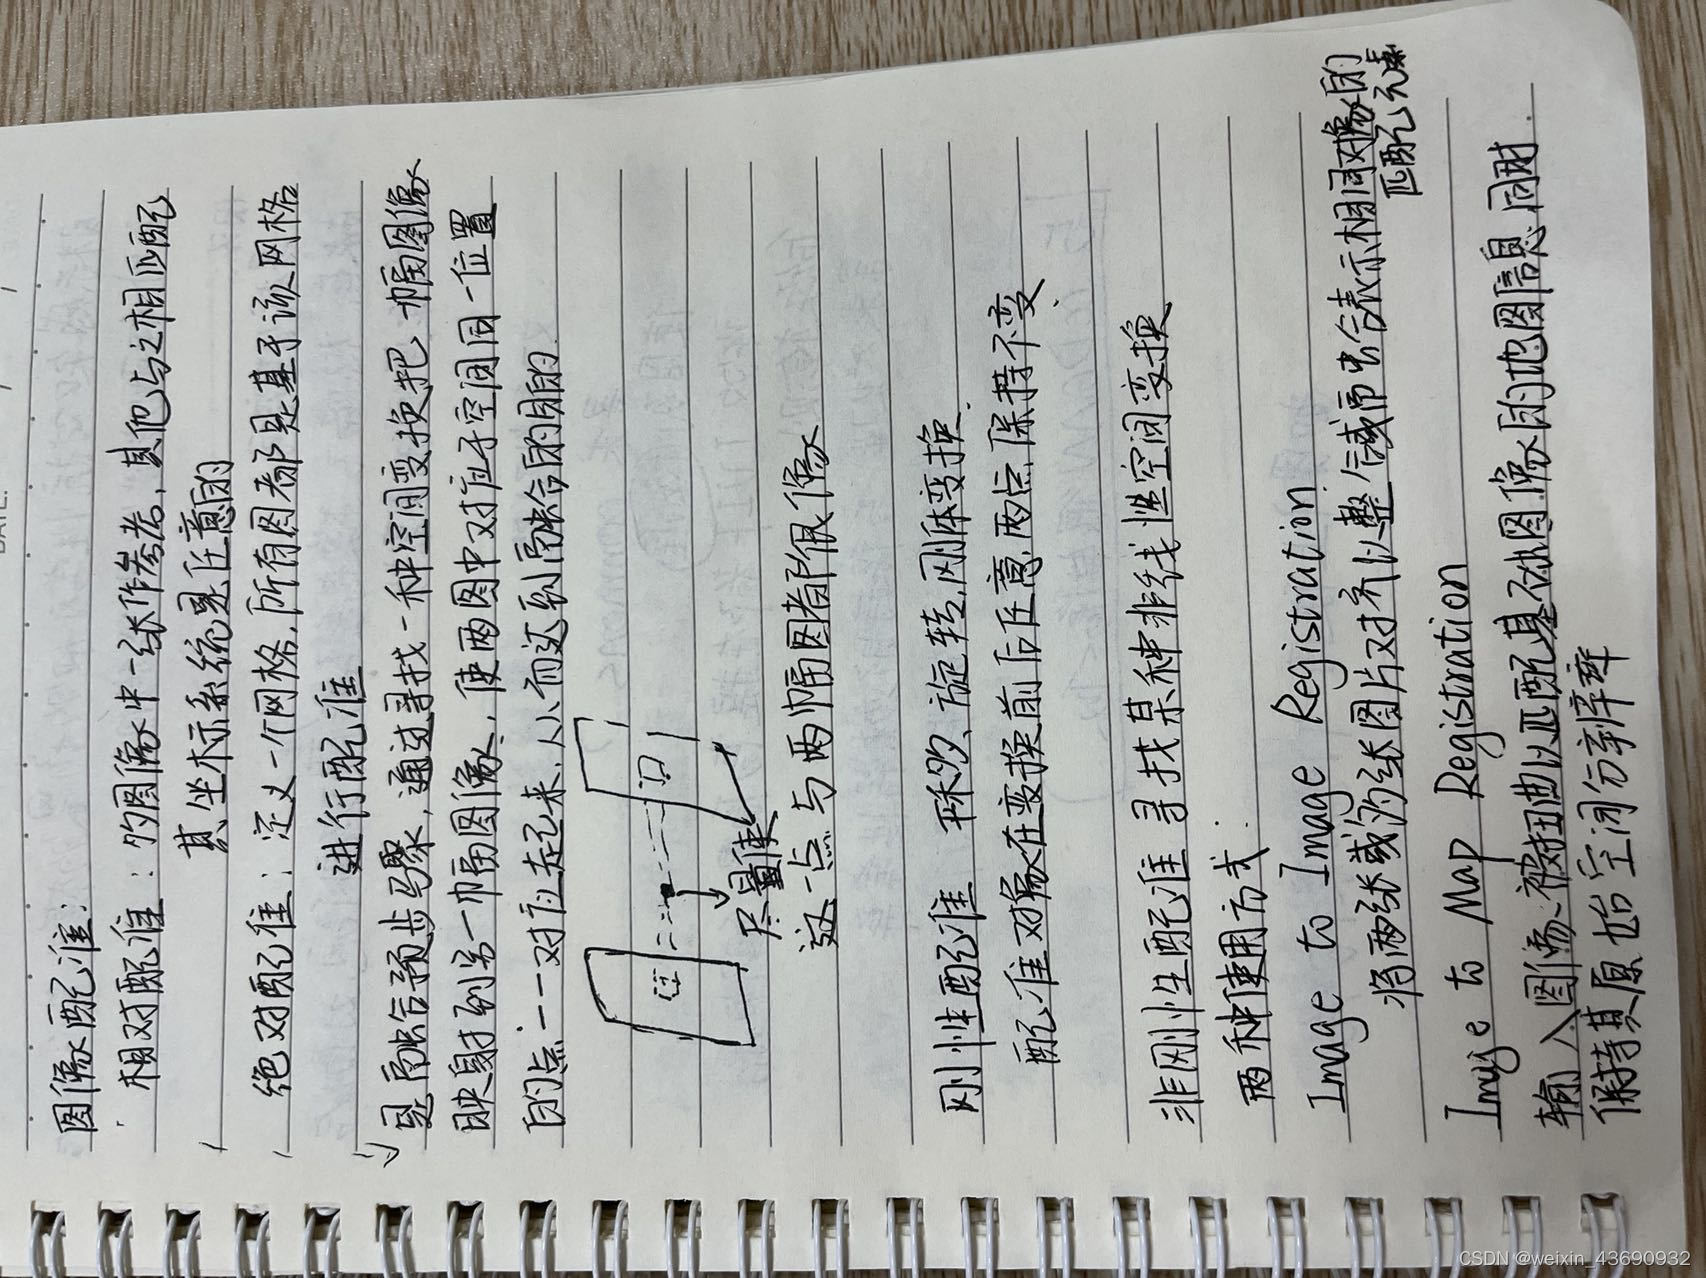 DATE:
图像配准:
相对配准:的图像中一张作参考,其他与之相匹配
其坐标系统是任意的
绝对配准:定义一个网格,所有图都是基于该网格
进行配准
是融合预步骤,通过寻找一种空间变换把一幅图像
映射到另一幅图像,使两图中对应于空间同一位置
的点一一对应起来,从而达到融合的目的
尽量使
这一点与两幅图都很像
刚性配准 平移、旋转、刚体变换.
配准对像在变换前后任意两点保持不变
非刚性配准 寻找某种非线性空间变换
两种使用方式:
Image to Image Registration
将两张或为张图片对齐以整合或市出合表示相同对像的
匹配元素
Image to Map Registration
输入图像被扭曲以匹配基础图像的地图信息,同时
保持其原始空间分辨率
CSDN @weixin_43690932